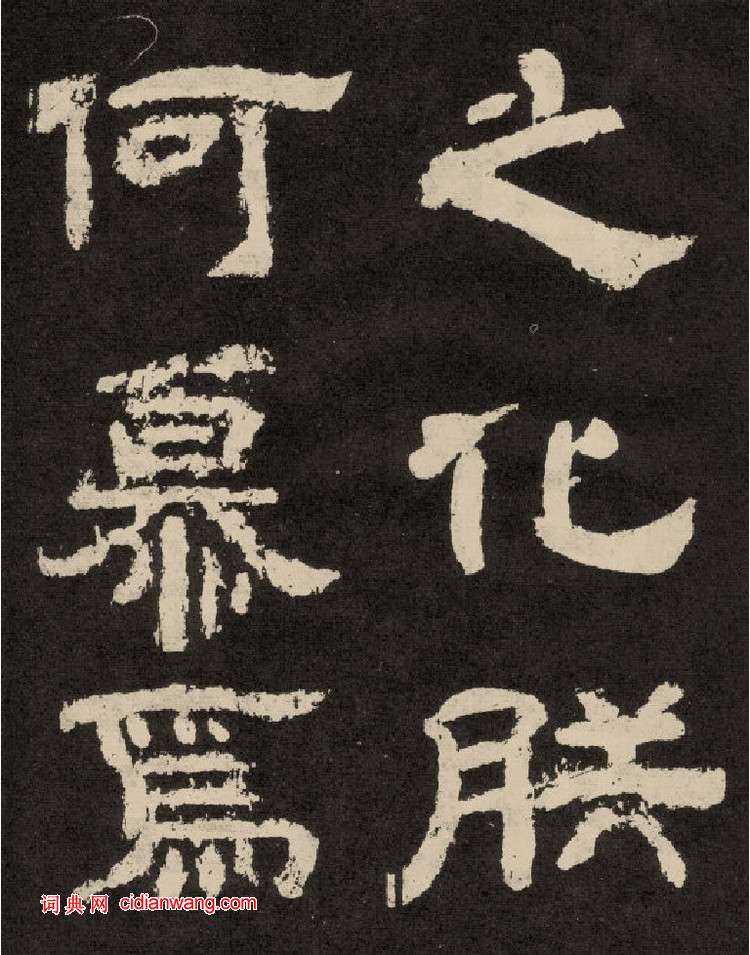 之化朕
何慕焉
词典网 cidianwang.com